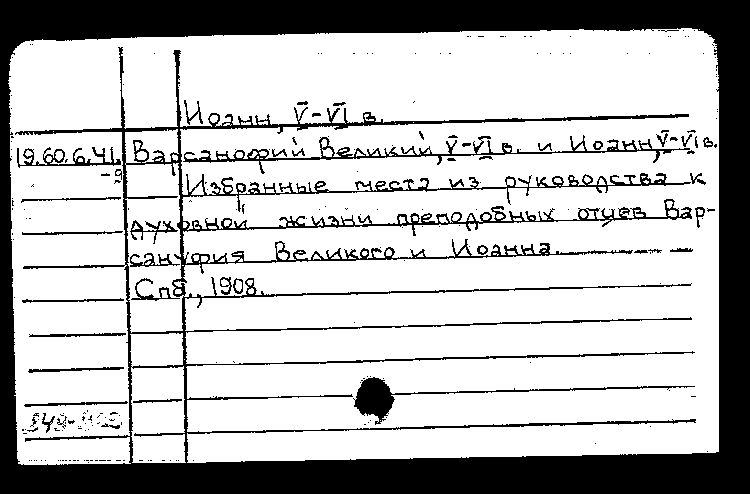 Иоанн, V-VI в.
19.60.6.41. Варсанофий Великий, V-VI в. и Иоанн, V-VI в.
-9
Избранные места из руководства к
духовной жизни преподобных отцев Вар-
сануфия Великого и Иоанна.
Спб., 1908.